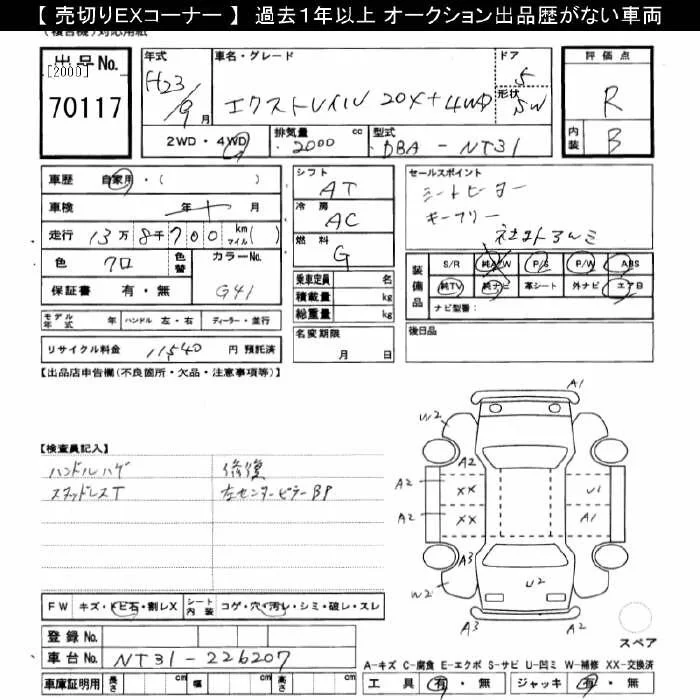 【 売切りEXコーナー 】 過去１年以上 オークション出品歴がない車両
出品No.
[2000]
70117
年式
H23/9月
車名・グレード
エクストレイル 20X+4WD
ドア
5
形状
SW
評価点
R
内装
B
2WD・4WD
排気量 cc
2000
型式
DBA - NT31
車歴 自家用・( )
車検 年 月
走行 13万 8千700 km マイル( )
色 クロ
色替
カラーNo.
G41
保証書 有・無
モデル年式 年 ハンドル 左・右 ディーラー・並行
リサイクル料金 11540 円 預託済
シフト
AT
冷房
AC
燃料
G
乗車定員 名
積載量 kg
総重量 kg
名変期限
月 日
セールスポイント
シートヒーター
キーフリー
装備品
S/R 純A/W P/S P/W ABS
純TV 純ナビ 革シート 外ナビ エアB
ナビ型番:
後日品
【出品店申告欄(不良箇所・欠品・注意事項等)】
【検査員記入】
ハンドルハゲ
スタッドレスT
修復
左センターピラーBP
A1
W2
A2
A2
XX
U1
A2
XX
A1
A3
W2
U2
A3
A2
スペア
FW キズ・トビ石・割レX シート内装 コゲ・穴・汚レ・シミ・破レ・スレ
登録No.
車台No. NT31-226207
車庫証明用 長さ cm 幅 cm 高さ cm
A-キズ C-腐食 E-エクボ S-サビ U-凹ミ W-補修 XX-交換済
工具 有・無 ジャッキ 有・無